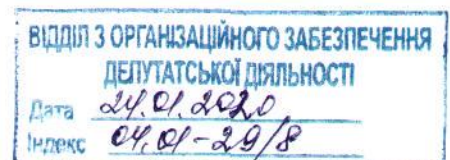 ВІДДІЛ З ОРГАНІЗАЦІЙНОГО ЗАБЕЗПЕЧЕННЯ
ДЕПУТАТСЬКОЇ ДІЯЛЬНОСТІ
Дата 24.01.2020
Індекс 04.01-29/8